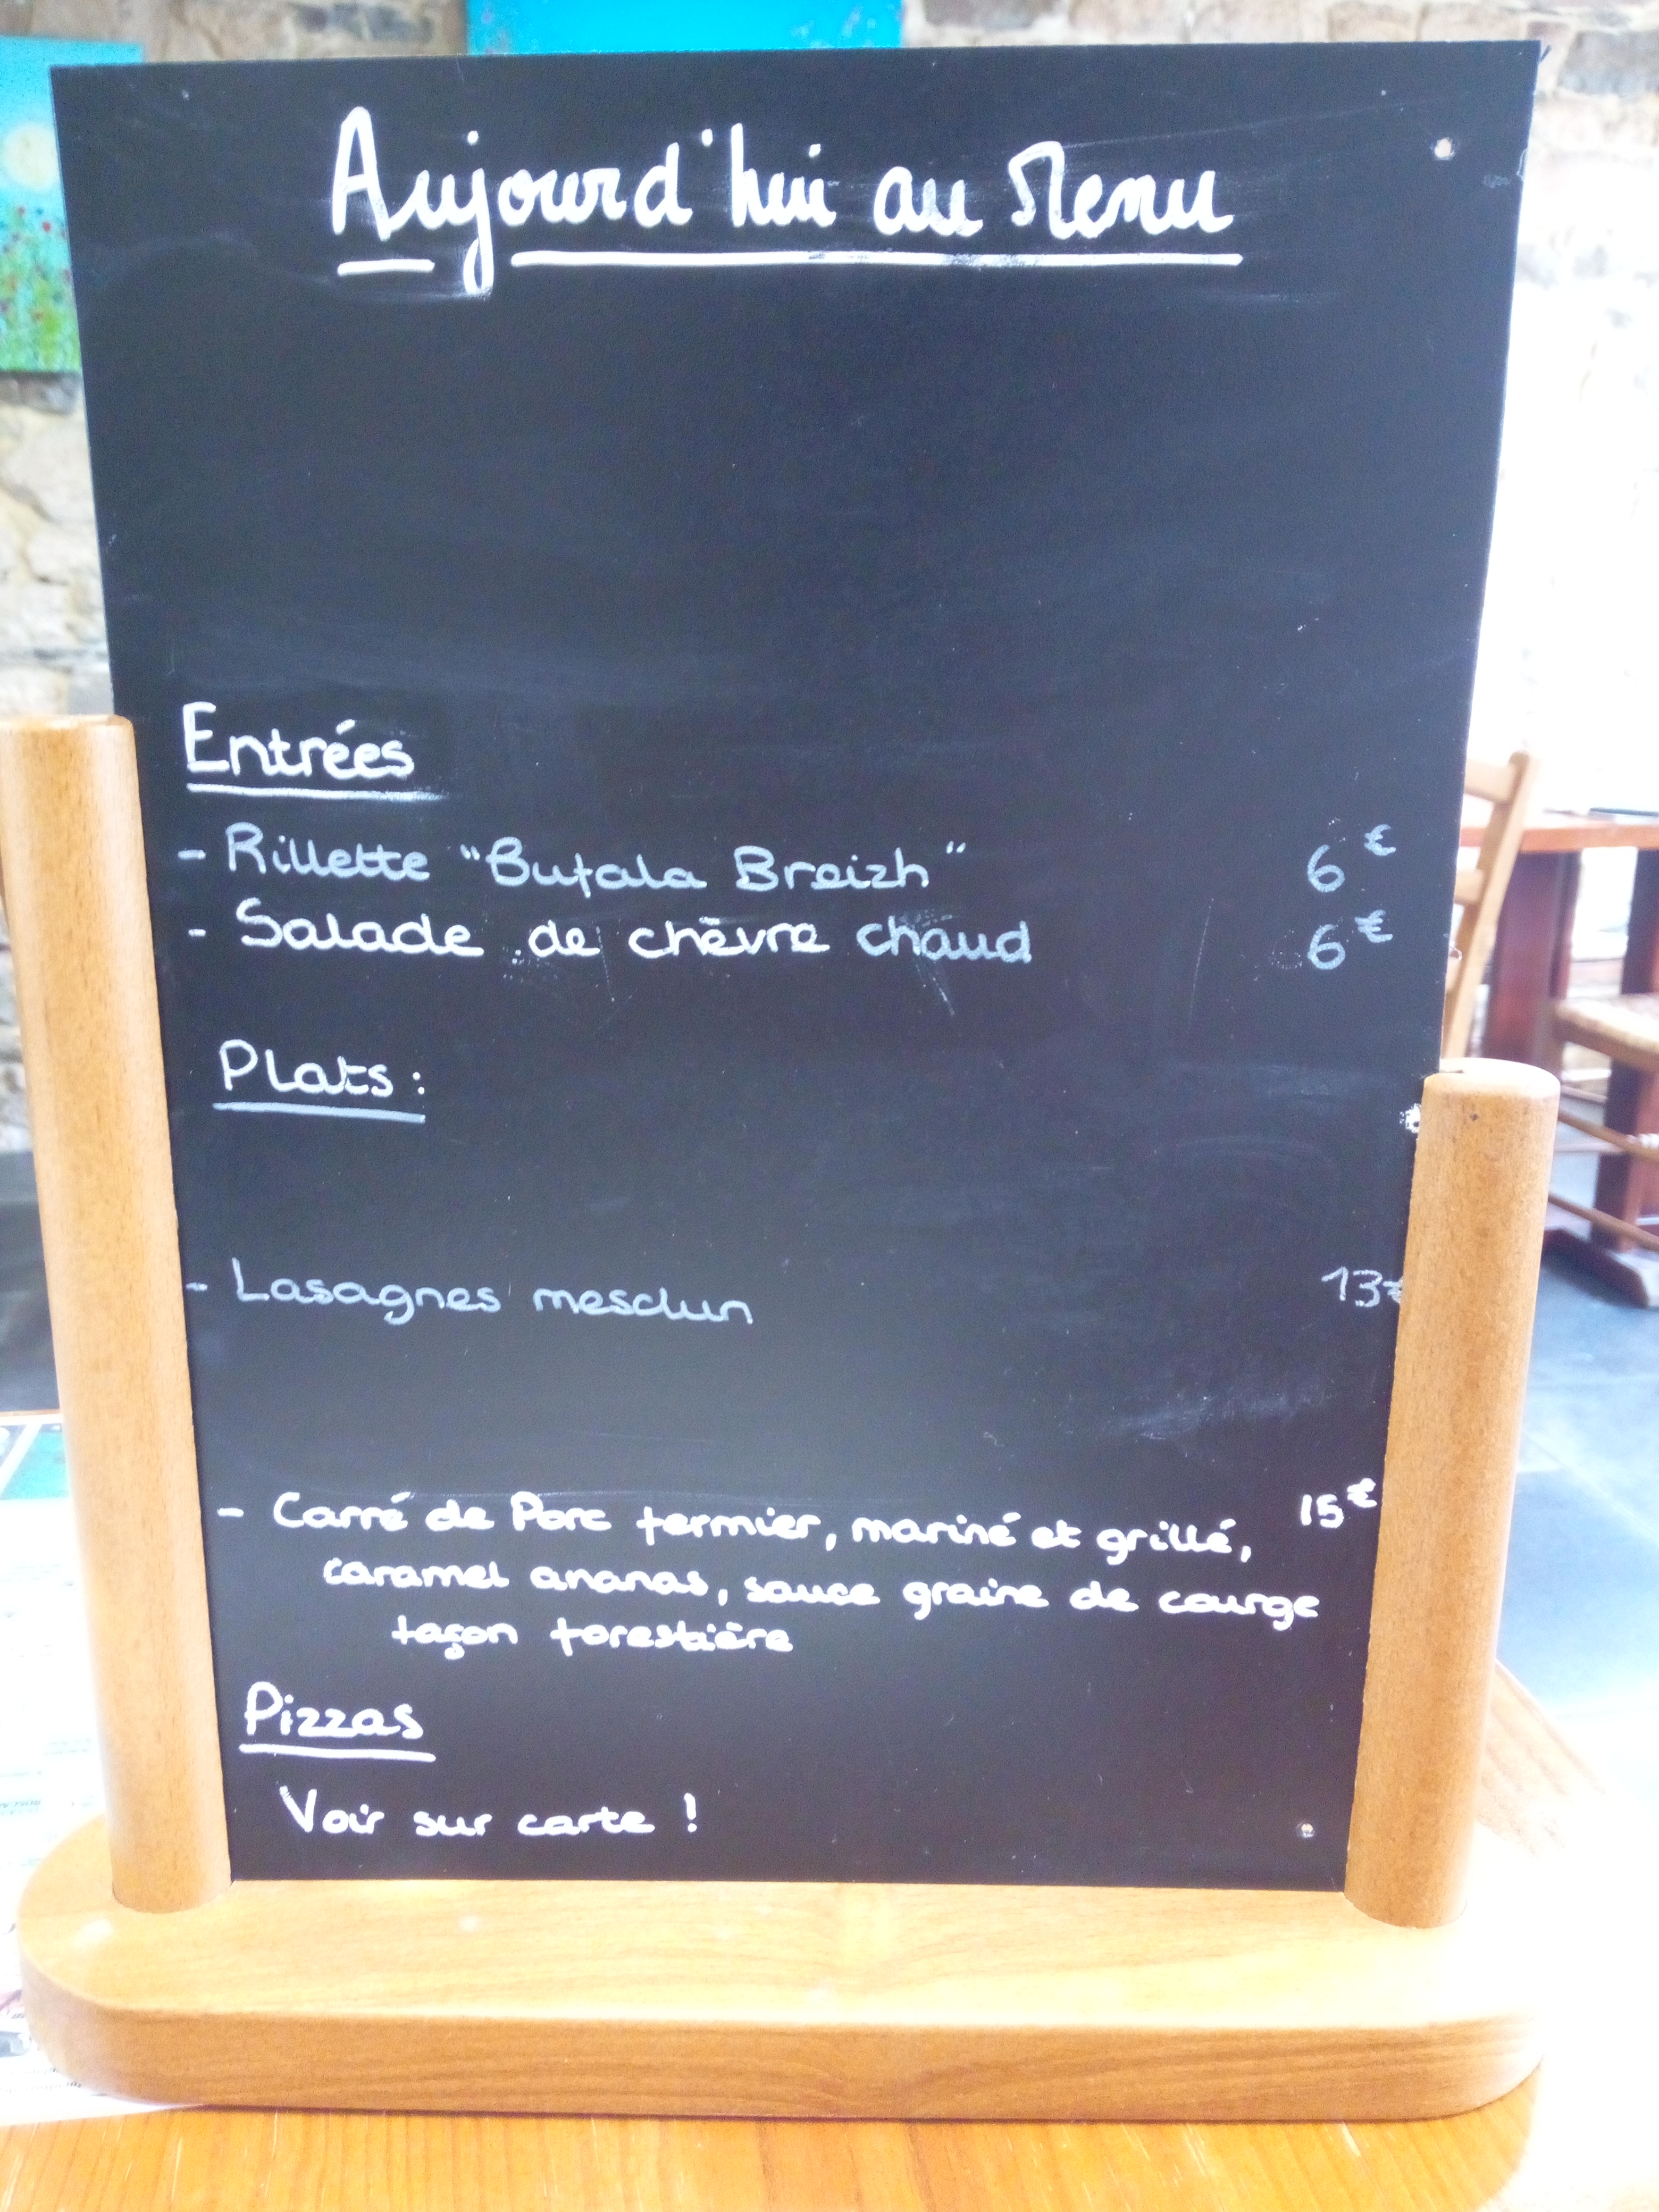 Aujourd'hui au Menu
Entrées
- Rillette "Bufala Breizh" 6€
- Salade de chèvre chaud 6€
Plats :
- Lasagnes mesclun 13€
- Carré de Porc fermier, mariné et grillé, 15€
caramel ananas, sauce graine de courge
façon forestière
Pizzas
Voir sur carte !